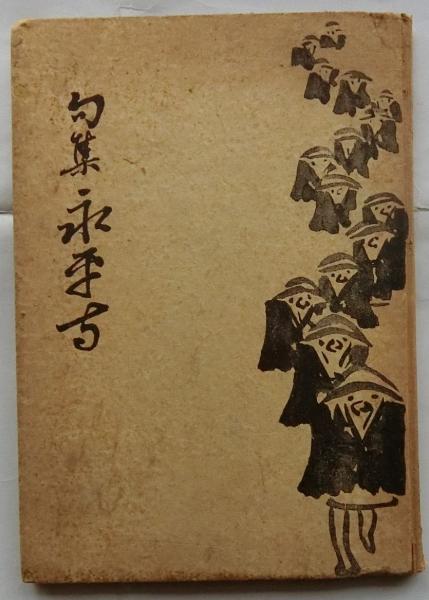 句集 永平寺